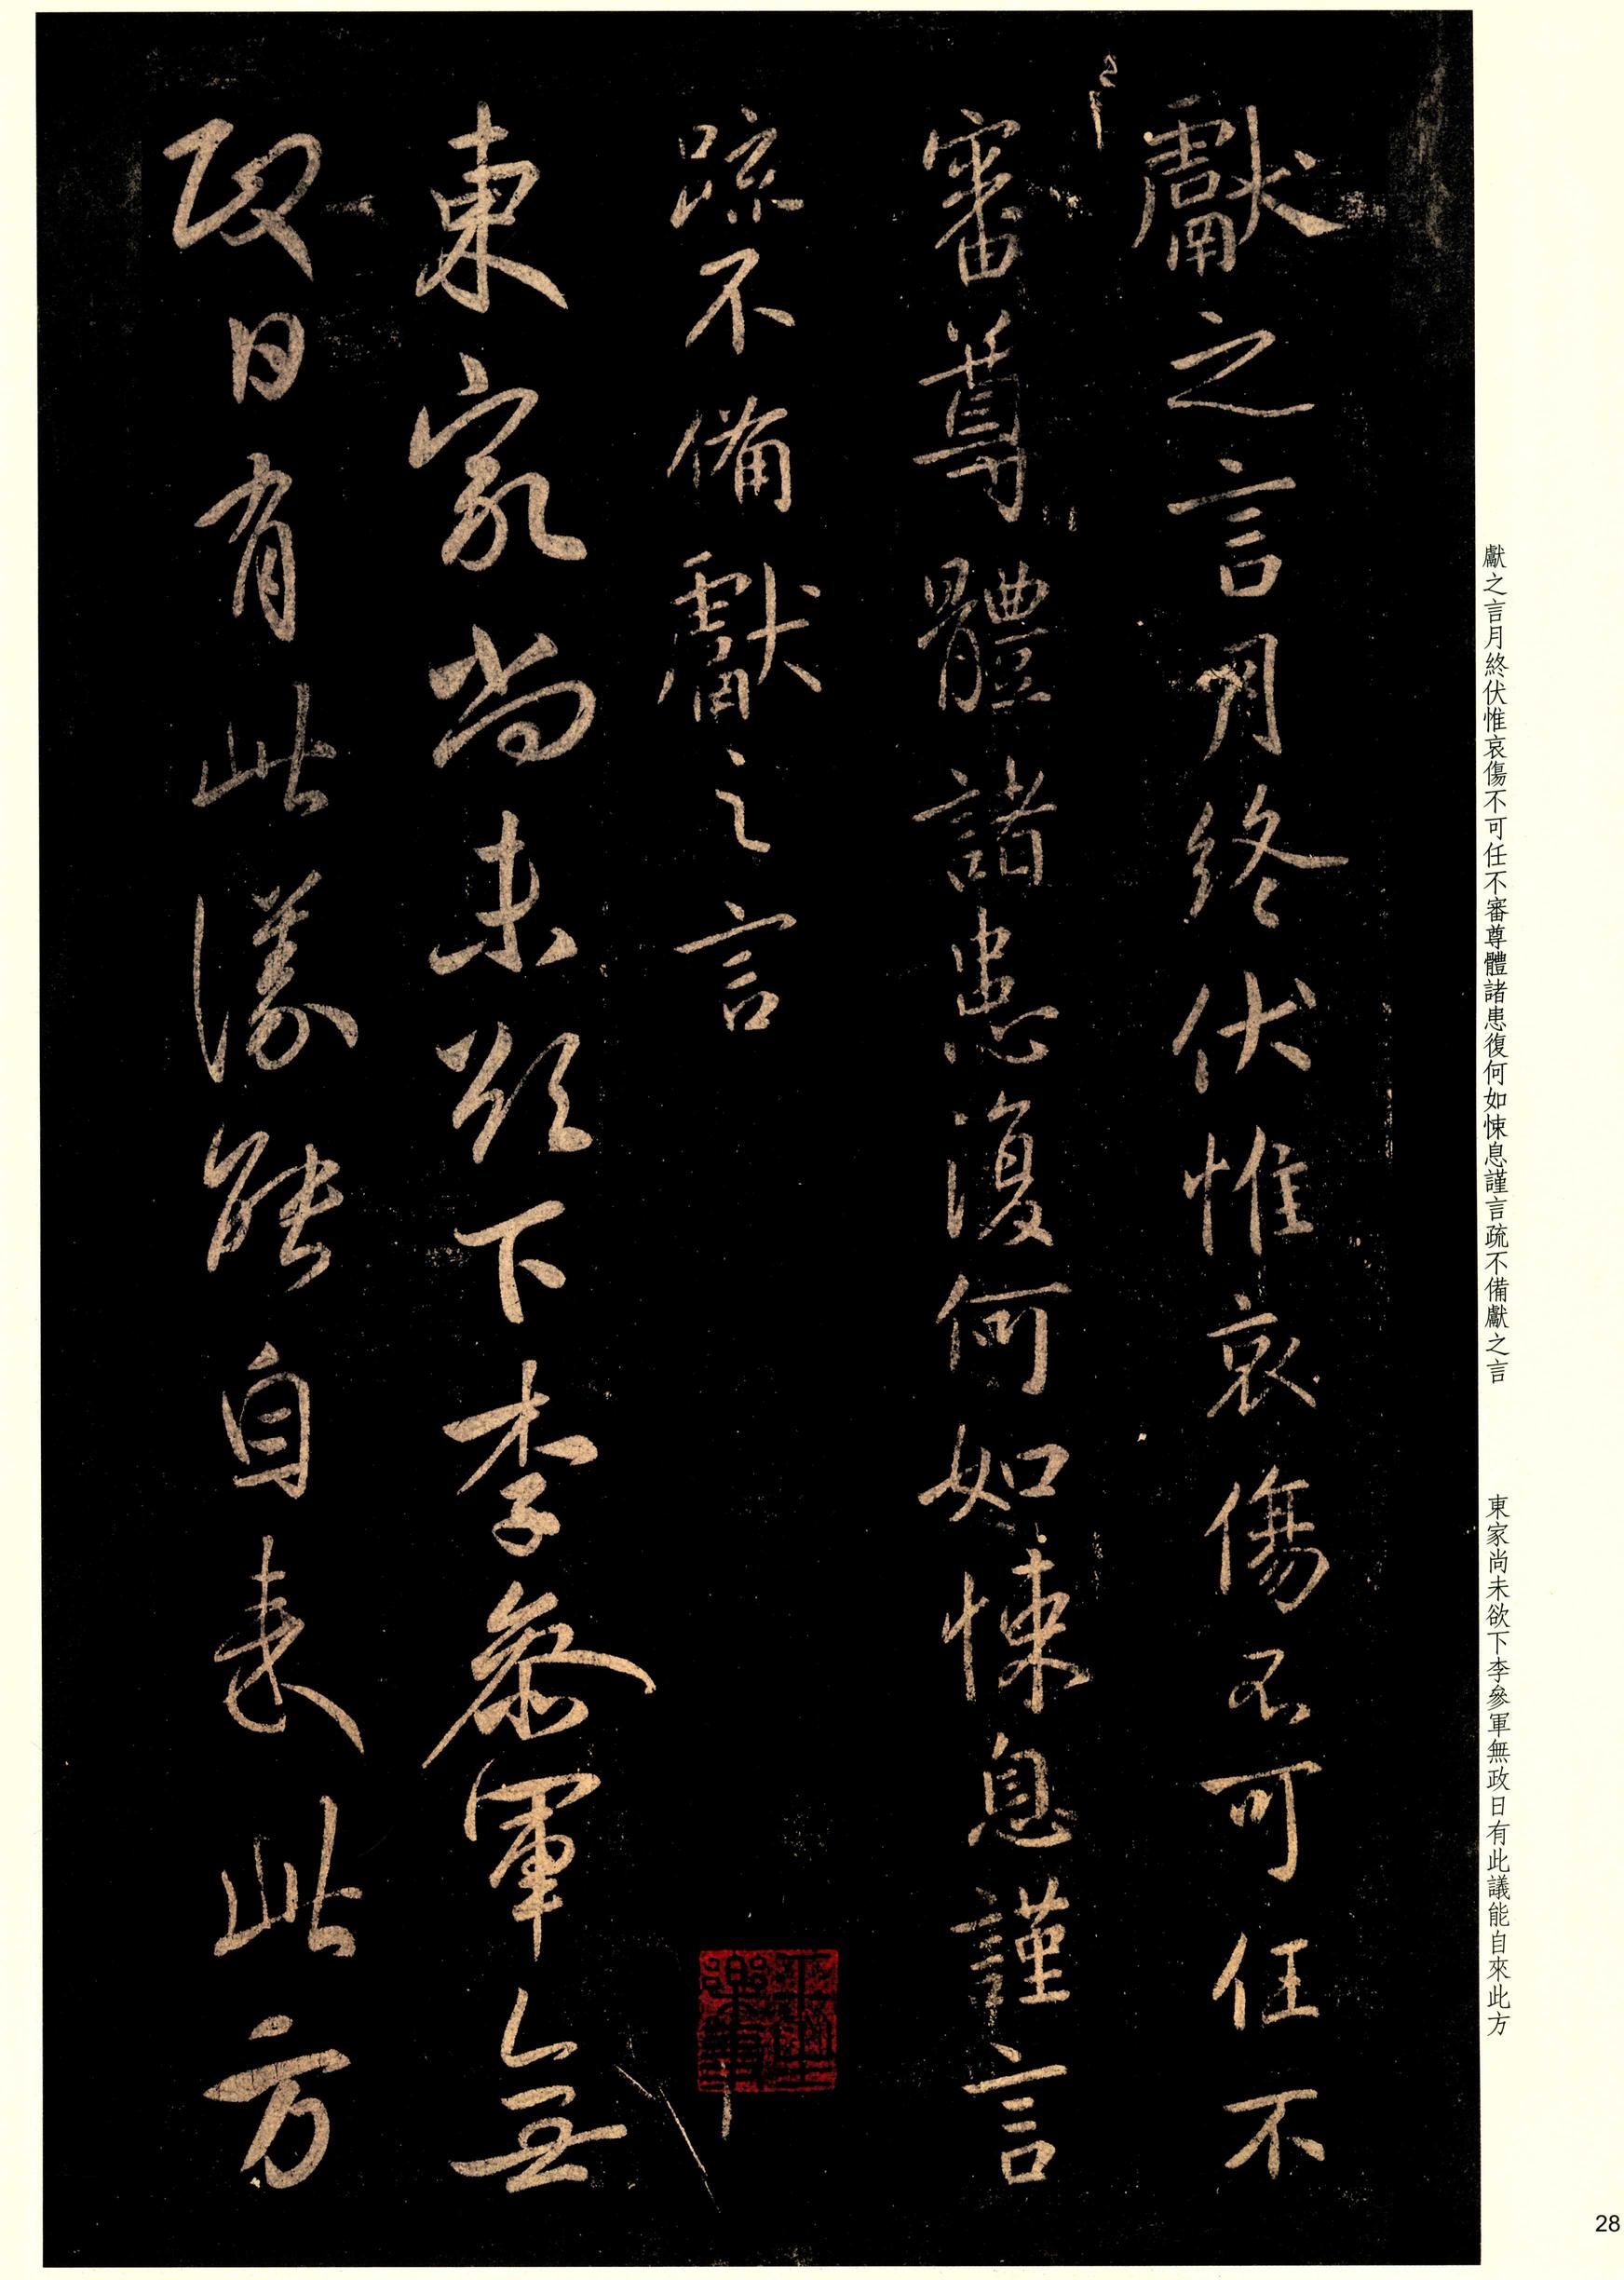 獻之言月終伏惟哀傷不可任不
審尊體諸患復何如悚息謹言
疏不備獻之言
東家尚未欲下李參軍無
政日有此議能自來此方
獻之言月終伏惟哀傷不可任不審尊體諸患復何如悚息謹言疏不備獻之言 東家尚未欲下李參軍無政日有此議能自來此方
28